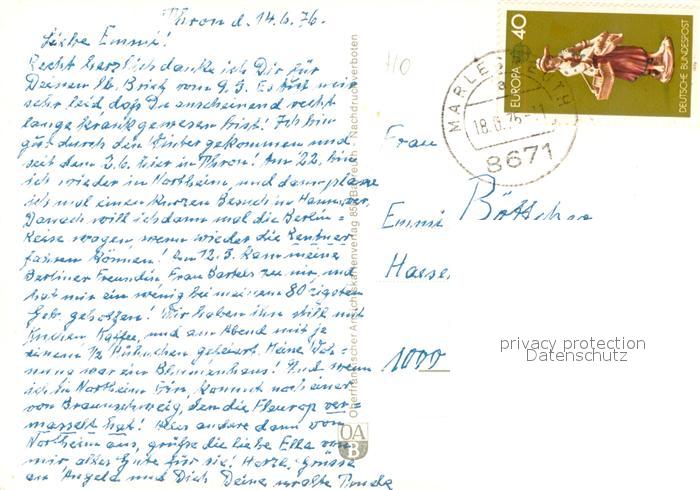 Thron d. 14.6.76.
Liebe Emmi!
Recht herzlich danke ich Dir für
Deinen lb. Brief vom 9.3. Es tut mir
sehr leid daß Du anscheinend recht
lange krank gewesen bist! Ich bin
gut durch den Winter gekommen und
seit dem 3.6. hier in Thron! Am 22. bin
ich wieder in Northeim, und dann plane
ich mal einen kurzen Besuch in Hannover.
Danach will ich dann mal die Berlin=
Reise wagen, wenn wieder die Rentner
fahren können! Am 12.3. kam meine
Berliner Freundin Frau Bartels zu mir, und
hat mir ein wenig bei meinem 80zigsten
Geb. geholfen! Wir haben ihn still mit
Kuchen, Kaffee, und am Abend mit je
einem ½ Hühnchen gefeiert. Meine Woh=
nung war ein Blumenhaus! Und wenn
ich in Northeim bin, kommt noch einer
von Braunschweig, den die Fleurop ver=
masselt hat! Alles andere dann von
Northeim aus, grüße die liebe Ella von
mir, alles Gute für sie! Herzl. Grüsse
an Angela und Dich Deine uralte
Oberfränkischer Ansichtskartenverlag 858 Bayreuth - Nachdruck verboten
OA
B
110
MARLE
18.6.76-11
8671
EUROPA 40
DEUTSCHE BUNDESPOST
Frau
Emmi Böttcher
Haese
1000
privacy protection
Datenschutz